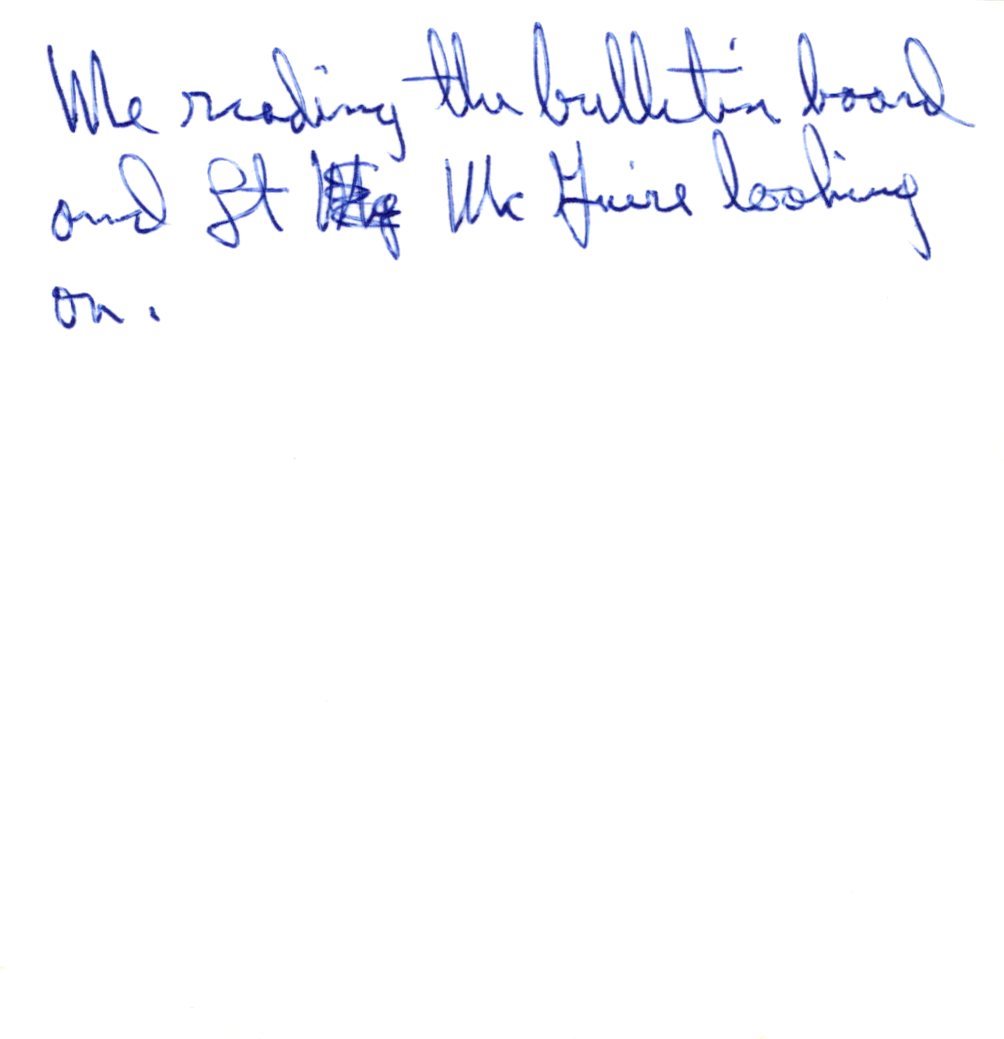 Me reading the bulletin board
and St Mc Guire looking
on.